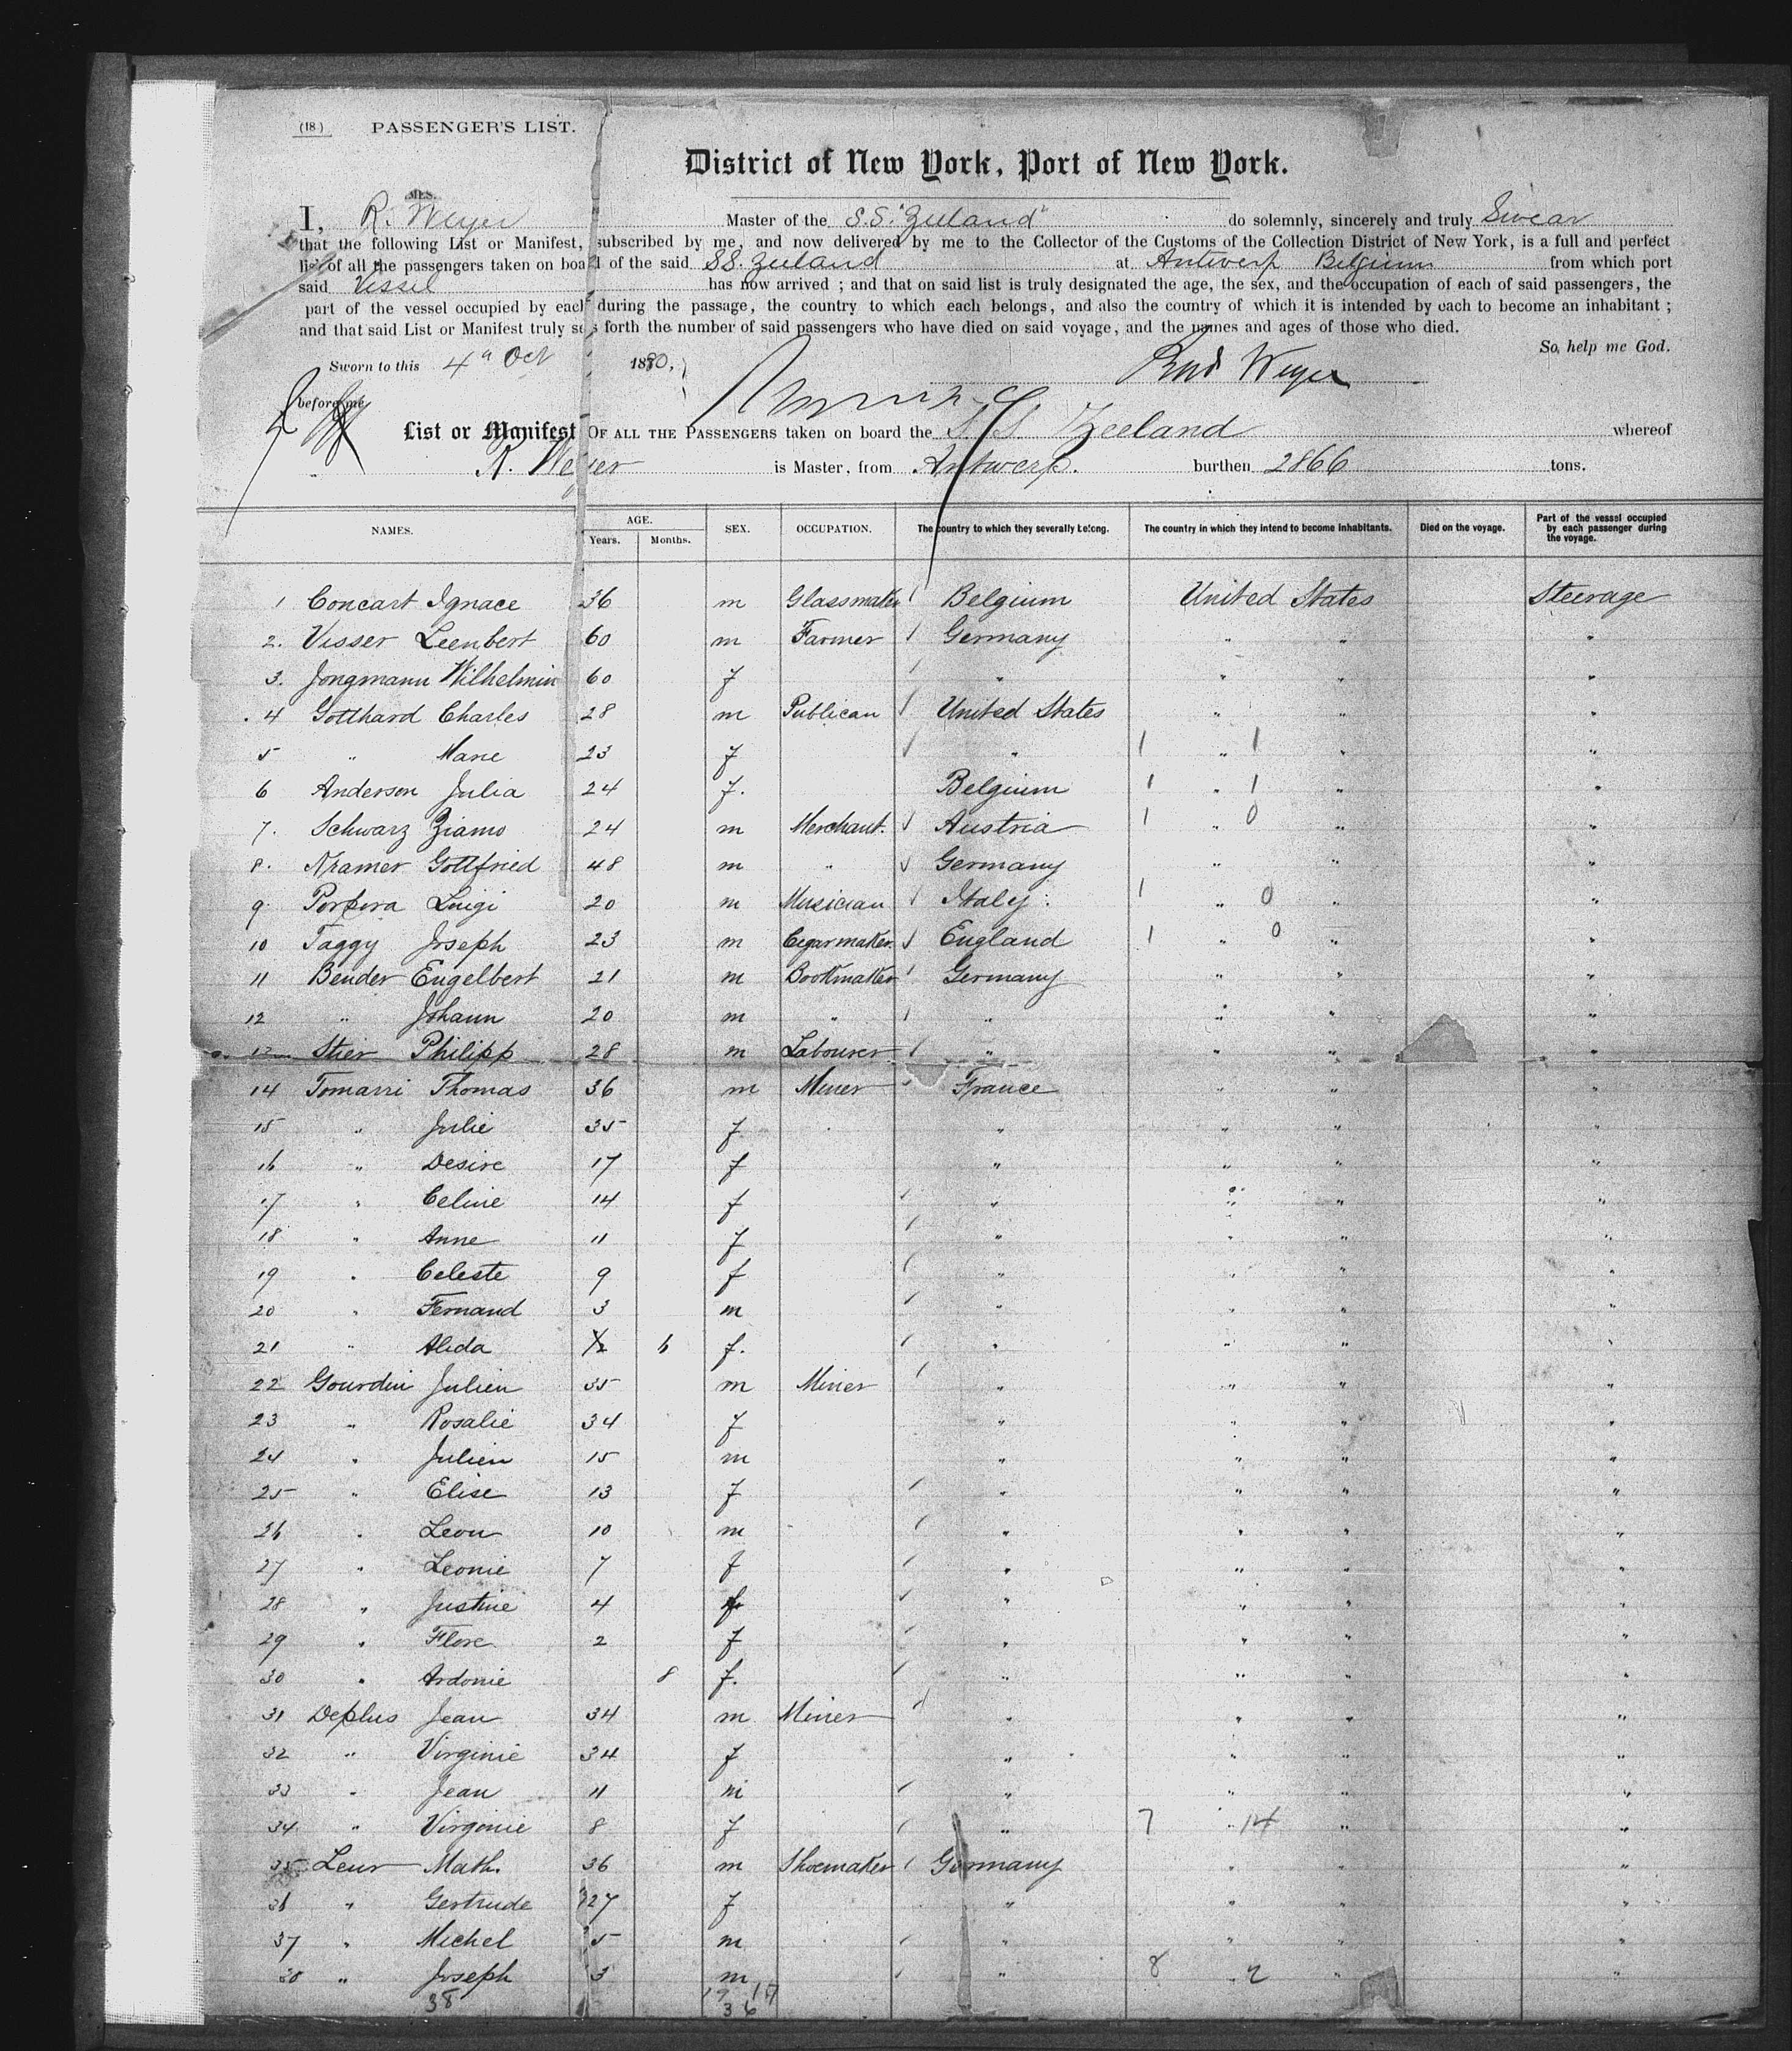 (18) PASSENGER'S LIST.
District of New York, Port of New York.
MES.
I, R. Weyer Master of the S.S. "Zeeland" do solemnly, sincerely and truly Swear
that the following List or Manifest, subscribed by me, and now delivered by me to the Collector of the Customs of the Collection District of New York, is a full and perfect
list of all the passengers taken on board of the said SS. Zeeland at Antwerp Belgium from which port
said Vessel has now arrived ; and that on said list is truly designated the age, the sex, and the occupation of each of said passengers, the
part of the vessel occupied by each during the passage, the country to which each belongs, and also the country of which it is intended by each to become an inhabitant ;
and that said List or Manifest truly sets forth the number of said passengers who have died on said voyage, and the names and ages of those who died.
So help me God.
Sworn to this 4th Oct 1880, Rud Weyer
before me
List or Manifest OF ALL THE PASSENGERS taken on board the S.S. Zeeland whereof
R. Weyer is Master, from Antwerp. burthen 2866 tons.
NAMES. AGE. Years. Months. SEX. OCCUPATION. The country to which they severally belong. The country in which they intend to become inhabitants. Died on the voyage. Part of the vessel occupied by each passenger during the voyage.
1 Concart Ignace 36 m Glassmaker Belgium United States Steerage
2. Visser Leenbert 60 m Farmer Germany " " "
3. Jongmann Wilhelmin 60 f " " " "
4 Gotthard Charles 28 m Publican United States " " "
5 " Marie 23 f " 1 " 1 " "
6 Anderson Julia 24 f. Belgium 1 " 1 " "
7. Schwarz Ziamo 24 m Merchant. Austria 1 " 0 " "
8. Kramer Gottfried 48 m " Germany " " "
9. Porpora Luigi 20 m Musician Italy 1 " 0 " "
10 Taggy Joseph 23 m Cigarmaker. England 1 " 0 " "
11 Bender Engelbert 21 m Bookmaker Germany " " "
12 " Johann 20 m " " " " "
13 Stier Philipp 28 m Labourer " " " "
14 Tomarri Thomas 36 m Miner France " " "
15 " Julie 35 f " " " "
16 " Desire 17 f " " " "
17 " Celine 14 f " " " "
18 " Anne 11 f " " " "
19 " Celeste 9 f " " " "
20 " Fernand 3 m " " " "
21 " Alida 6 f. " " " "
22 Gourdin Julien 35 m Miner " " " "
23 " Rosalie 34 f " " " "
24 " Julien 15 m " " " "
25 " Elise 13 f " " " "
26 " Leon 10 m " " " "
27 " Leonie 7 f " " " "
28 " Justine 4 f " " " "
29 " Flore 2 f " " " "
30 " Ardonie 8 f. " " " "
31 Deplus Jean 34 m Miner " " " "
32 " Virginie 34 f " " " "
33 " Jean 11 m " " " "
34 " Virginie 8 f " 7 " 14 " "
35 Leur Math. 36 m Shoemaker Germany " " "
36 " Gertrude 27 f " " " "
37 " Michel 5 m " " " "
38 " Joseph 3 m " 8 " 2 " "
38 19 17
36